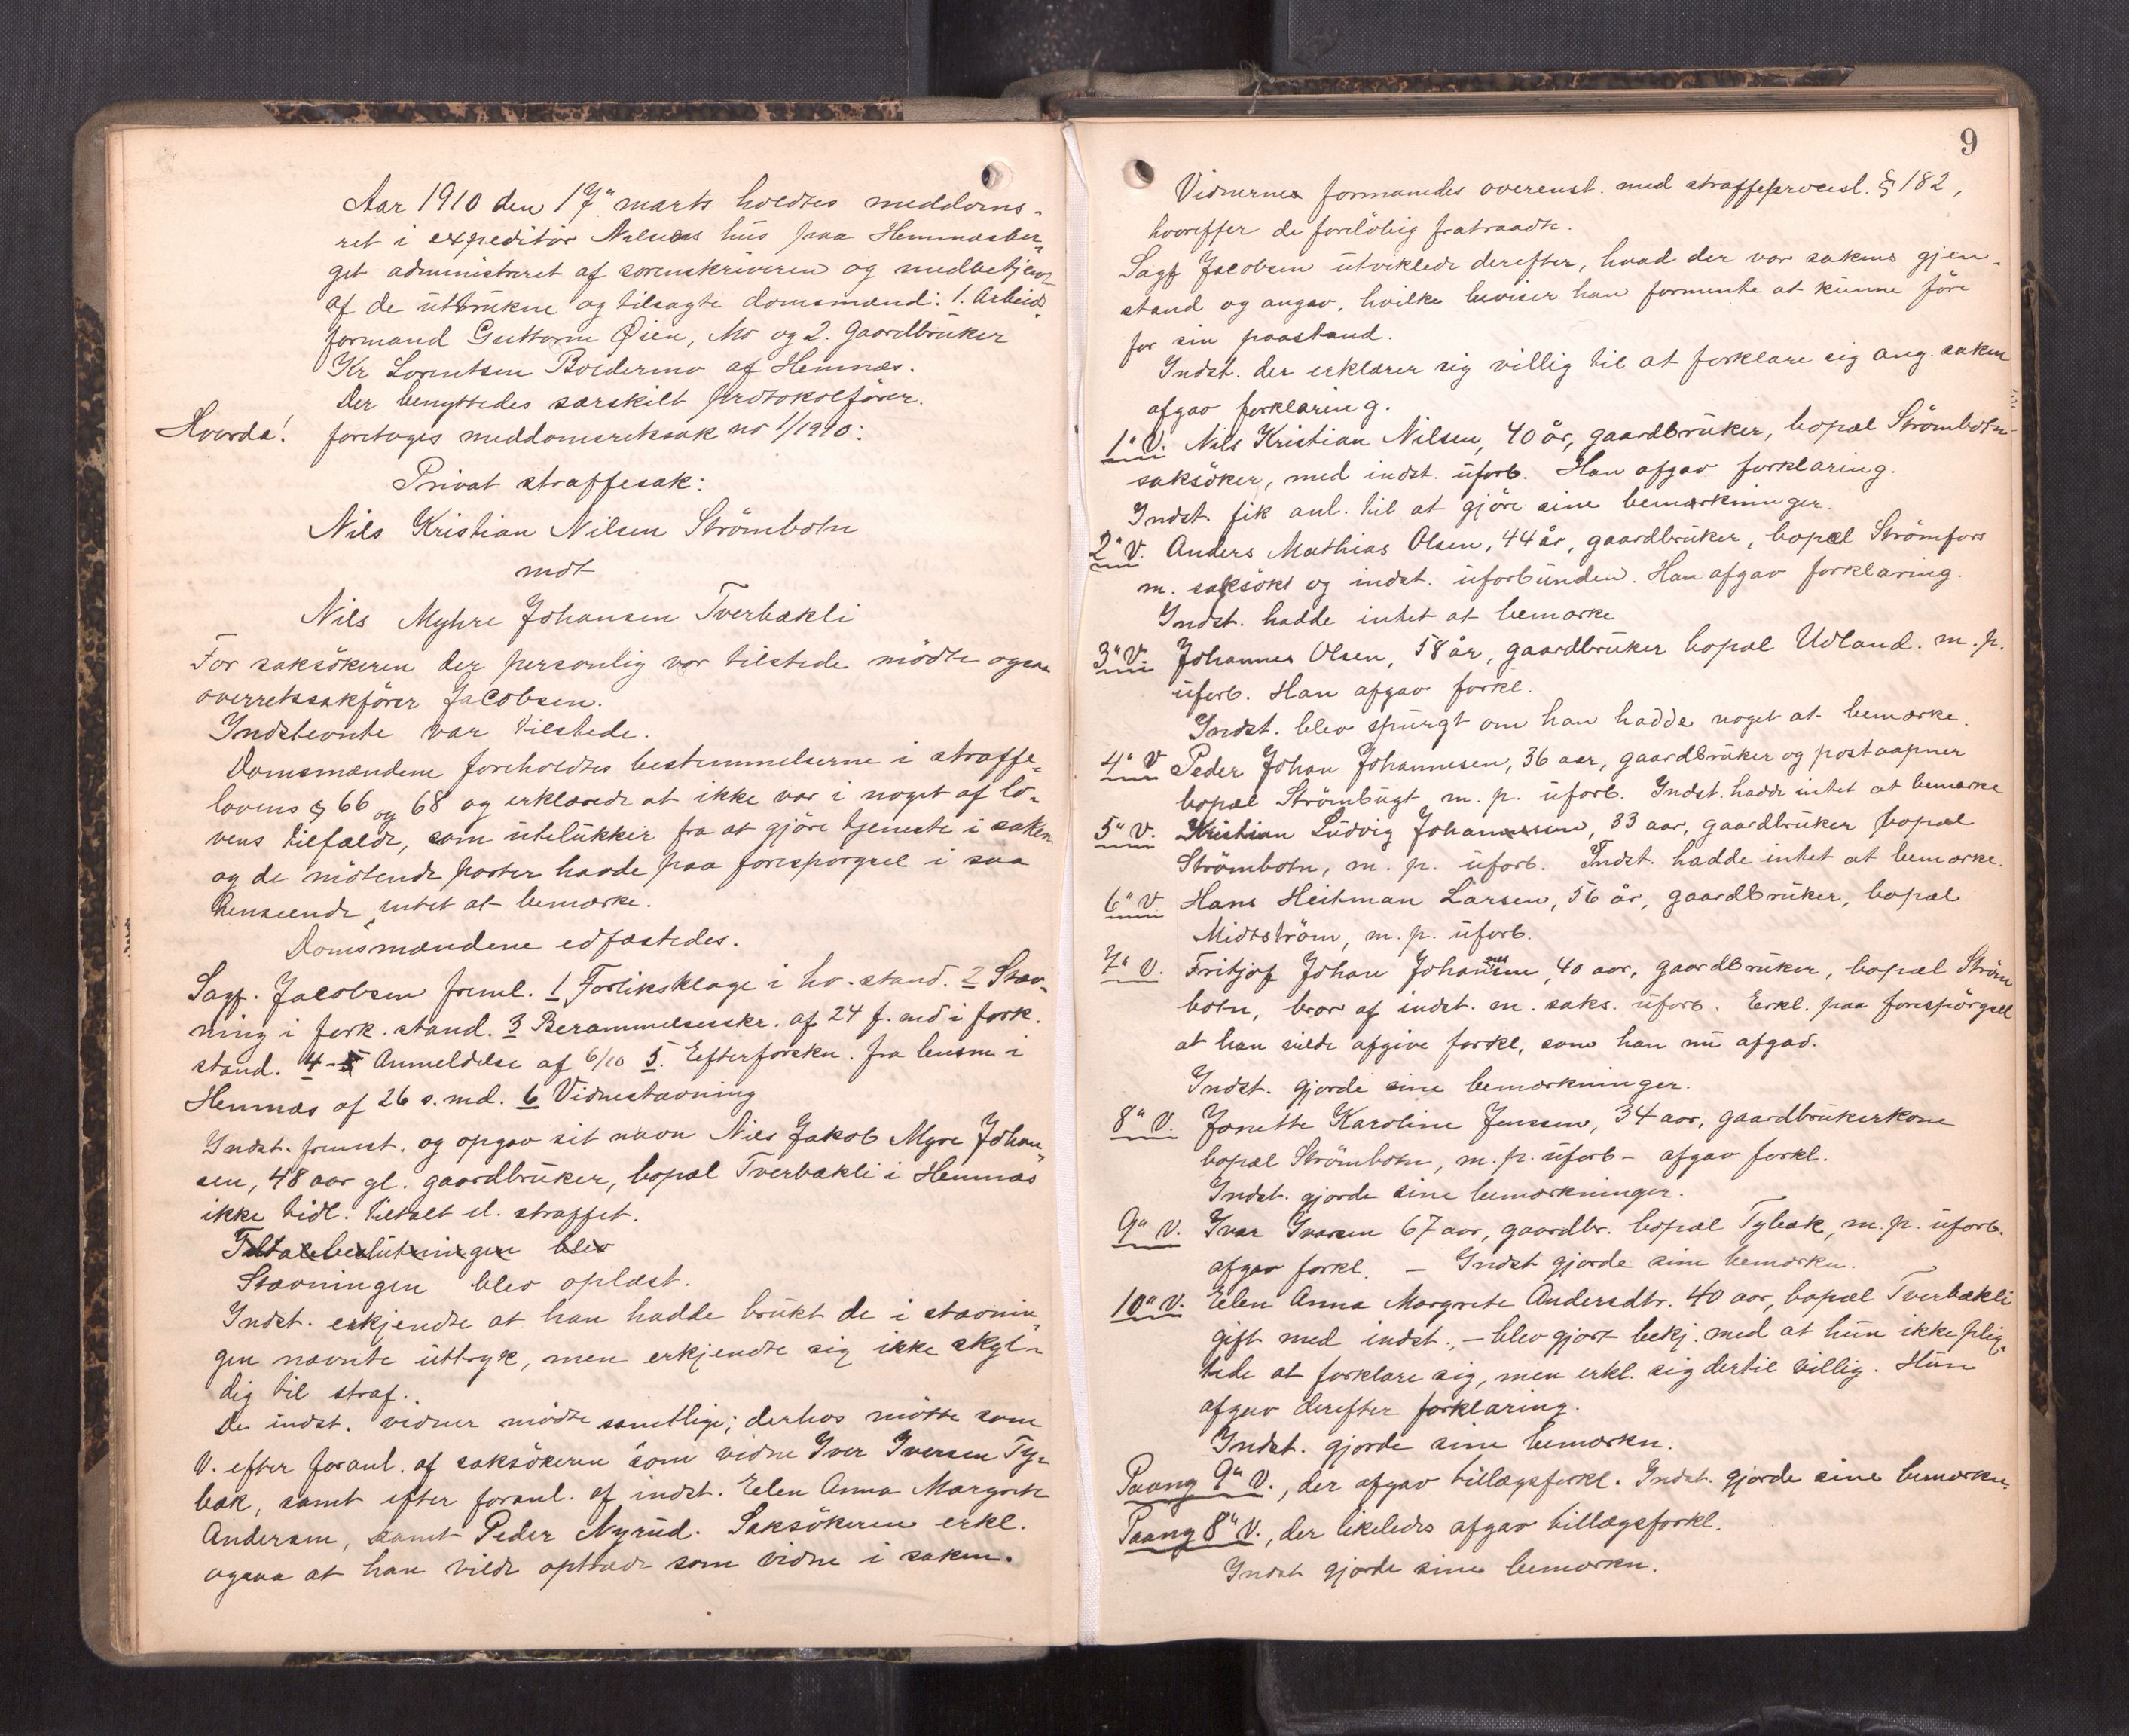 Aar 1910 den 17" marts holdtes meddoms-
ret i expeditör Nilsens hus paa Hemnæsber„
get administreret af sorenskriveren og medbetjent
af de uttrukne og tilsagte domsmænd: 1. Arbeids„
formand Guttorm Øien, Mo og 2. Gaardbruker
Kr Lorentsen Boldermo af Hemnæs.
Der benyttedes særskilt protokolförer.
Hvorda! foretoges meddomsretssak no 1/1910:
Privat straffesak:
Nils Kristian Nilsen Strömbotn
mot
Nils Myhre Johansen Tverbækli
For saksökeren der personlig var tilstede mödte ogsaa
overretssakförer Jacobsen.
Indstevnte var tilstede.
Domsmændene foreholdtes bestemmelserne i straffe„
lovens § 66 og 68 og erklærede at ikke var i noget af lo„
vens tilfælde, som utelukker fra at gjöre tjeneste i saken
og de mötende parter havde paa foresporgsel i saa
henseende intet at bemærke.
Domsmændene edfæstedes.
Sagf. Jacobsen freml. 1 Forliksklage i ho. stand. 2 Stæv„
ning i fork. stand. 3 Berammelsesskr. af 24 f. md i fork.
stand. 4 - 5 Anmeldelse af 6/10 5. Efterforskn. fra lensm i
Hemnæs af 26 s. md. 6 Vidnestævning
Indst. fremst. og opgav sit navn Nils Jakob Myre Johan„
sen, 48 aar gl. gaardbruker, bopæl Tverbækli i Hemnæs
ikke tidl. tiltalt el. straffet.
Tiltalebeslutningen blev
Stævningen blev oplæst.
Indst. erkjendte at han hadde brukt de i stævnin„
gen nævnte uttryk, men erkjendte sig ikke skyl-
dig til straf.
De indst. vidner mödte samtlige; derhos mötte som
V. efter foranl. af saksökeren som vidne Iver Iversen Ty„
bæk, samt efter foranl. af indst. Elen Anna Margrete
Andersen, samt Peder Nyrud. Saksökeren erkl.
ogsaa at han vilde optræde som vidne i saken.
9
Vidnerne formanedes overenst. med straffeprocesl. § 182,
hvorefter de foreløbig fratraadte.
Sagf Jacobsen utviklede derefter, hvad der var sakens gjen„
stand og angav, hvilke beviser han formente at kunne före
for sin paastand.
Indst. der erklærer sig villig til at forklare sig ang. saken
afgav forklaring.
1" V. Nils Kristian Nilsen, 40 år, gaardbruker, bopæl Strömbotn
saksöker, med indst. uforb. Han afgav forklaring.
Indst. fik anl. til at gjöre sine bemærkninger.
2" V. Anders Mathias Olsen, 44 år, gaardbruker, bopæl Strömfors
m. saksökr og indst. uforbunden. Han afgav forklaring.
Indst. hadde intet at bemærke
3" V. Johannes Olsen, 58 år, gaardbruker bopæl Udland. m. p.
uforb. Han afgav forkl.
Indst. blev spurgt om han hadde noget at bemærke.
4" V Peder Johan Johannesen, 36 aar, gaardbruker og postaapner
bopæl Strömbugt m. p. uforb. Indst. hadde intet at bemærke
5" V. Kristian Ludvig Johannesen, 33 aar, gaardbruker bopæl
Strömbotn, m. p. uforb. Indst. hadde intet at bemærke.
6" V Hans Heitman Larsen, 56 år, gaardbruker, bopæl
Midtström, m. p. uforb.
7" V. Fritjof Johan Johansen, 40 aar, gaardbruker, bopæl Ström
botn, bror af indst. m. saks. uforb. Erkl. paa forespörgsel
at han vilde afgive forkl, som han nu afgav.
Indst. gjorde sine bemærkninger.
8" V. Janette Karoline Jenssen, 34 aar, gaardbrukerkone
bopæl Strömbotn, m. p. uforb - afgav forkl.
Indst. gjorde sine bemærkninger.
9" V. Ivar Ivarsen 67 aar, gaardbr. bopæl Tybæk, m. p. uforb.
afgav forkl. - Indst gjorde sine bemærkn.
10" V. Elen Anna Margrete Andersdtr. 40 aar, bopæl Tverbækli
gift med indst., - blev gjort bekj. med at hun ikke plig„
tede at forklare sig, men erkl. sig dertil villig. Hun
afgav derefter forklaring.
Indst. gjorde sine bemærkn.
Paany 9" V., der afgav tillægsforkl. Indst. gjorde sine bemærkn.
Paany 8" V., der likeledes afgav tillægsforkl.
Indst gjorde sine bemærkn.